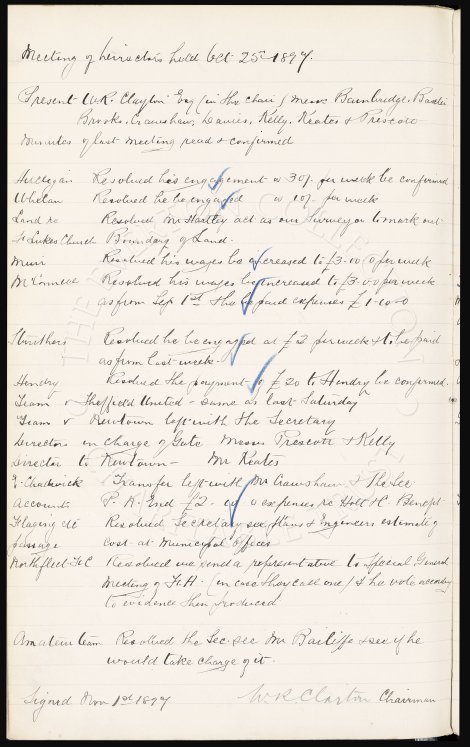 Meeting of Directors held Oct 25th 1897.
Present W.R. Clayton Esq (in the chair) Messrs Bainbridge, Baxter
Brooks, Crawshaw, Davies, Kelly, Keates & Prescott
Minutes of last meeting read & confirmed
Hartigan Resolved his engagement @ 30/- per week be confirmed
Whelan Resolved he be engaged @ 10/- per week
Land re Resolved Mr Hartley act as our Surveyor to mark out
St Lukes Church Boundary of Land.
Muir Resolved his wages be increased to £3.00.0 per week
McConnell Resolved his wages be increased to £3.00 per week
as from Sep 1st & he be paid expenses £1-10-0
Struthers Resolved he be engaged at £2 per week & to be paid
as from last week.
Hendry Resolved the payment of £20 to Hendry be confirmed.
Team v Sheffield United - same as last Saturday
Team v Newtown left with the Secretary
Directors in charge of Gate Messrs Prescott & Kelly
Director to Newtown - Mr Keates
E. Chadwick Transfer left with Mr Crawshaw & the Sec
Accounts P. R. End £2. expenses re Holt & C. Benefit
Flagging etc Resolved Secretary see plans & Engineers estimate of
passage cost at Municipal Offices
Northfleet F.C Resolved we send a representative to Special General
Meeting of F.A. (in case they call one) & he vote according
to evidence then produced
Amateur team Resolved the Sec see Mr Bailiffe & see if he
would take charge of it.
Signed Nov 1st 1897 W.R. Clayton Chairman